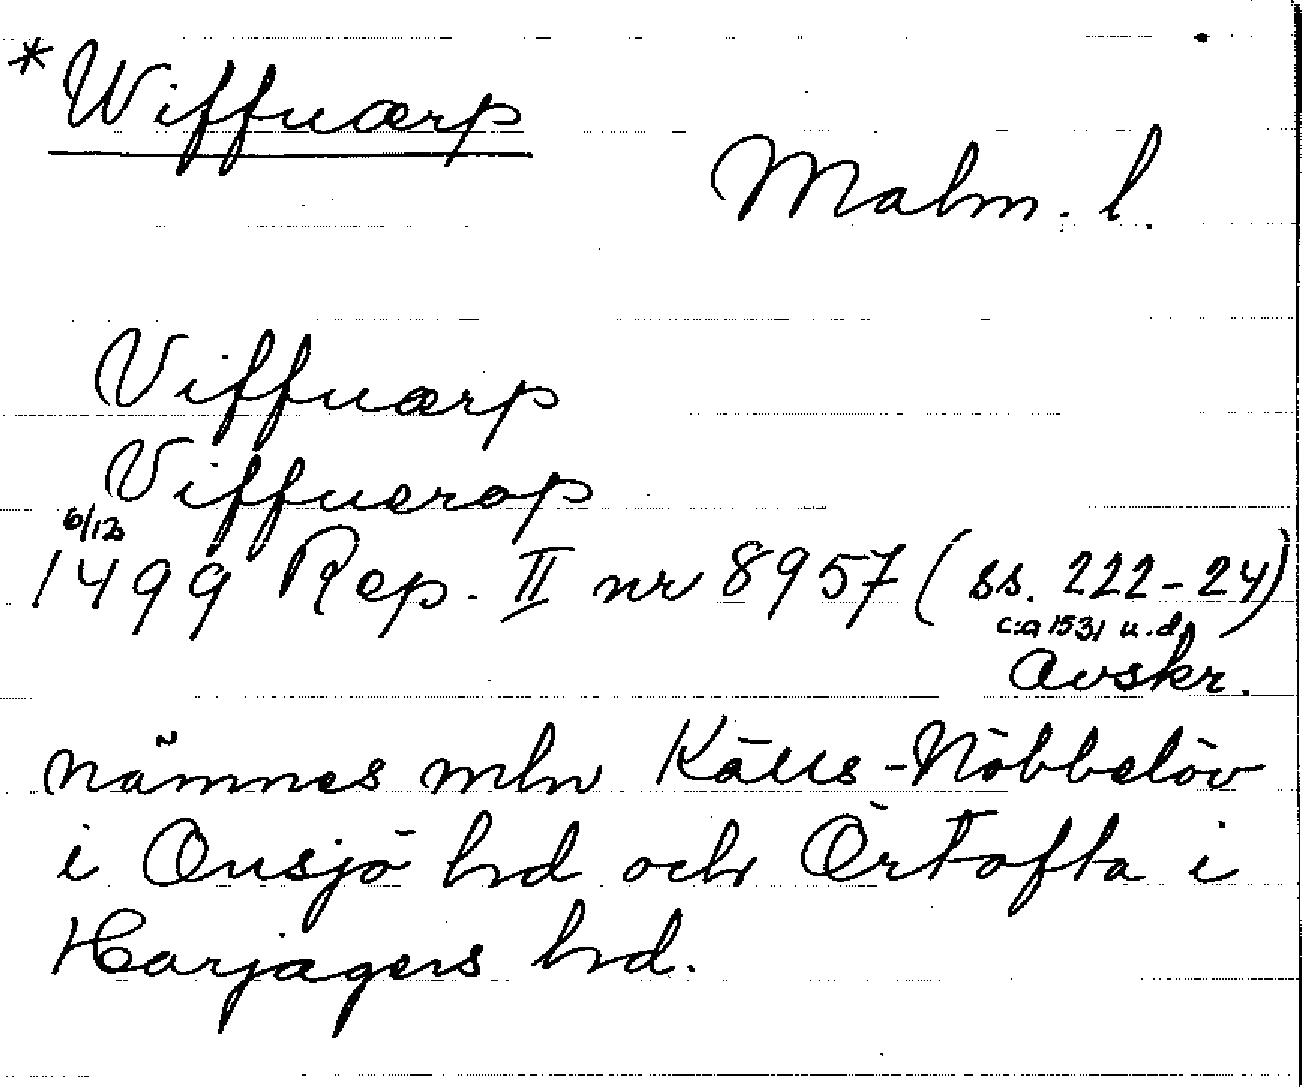 *Wiffuærp
Malm. l.
Viffuærp
Viffuerop
6/12
1499 Rep. II nr 8957 (ss. 222-24)
c:a 1531 u.d.
Avskr.
nämnes mln Källs-Nöbbelöv
i Onsjö hd och Örtofta i
Harjagers hd.